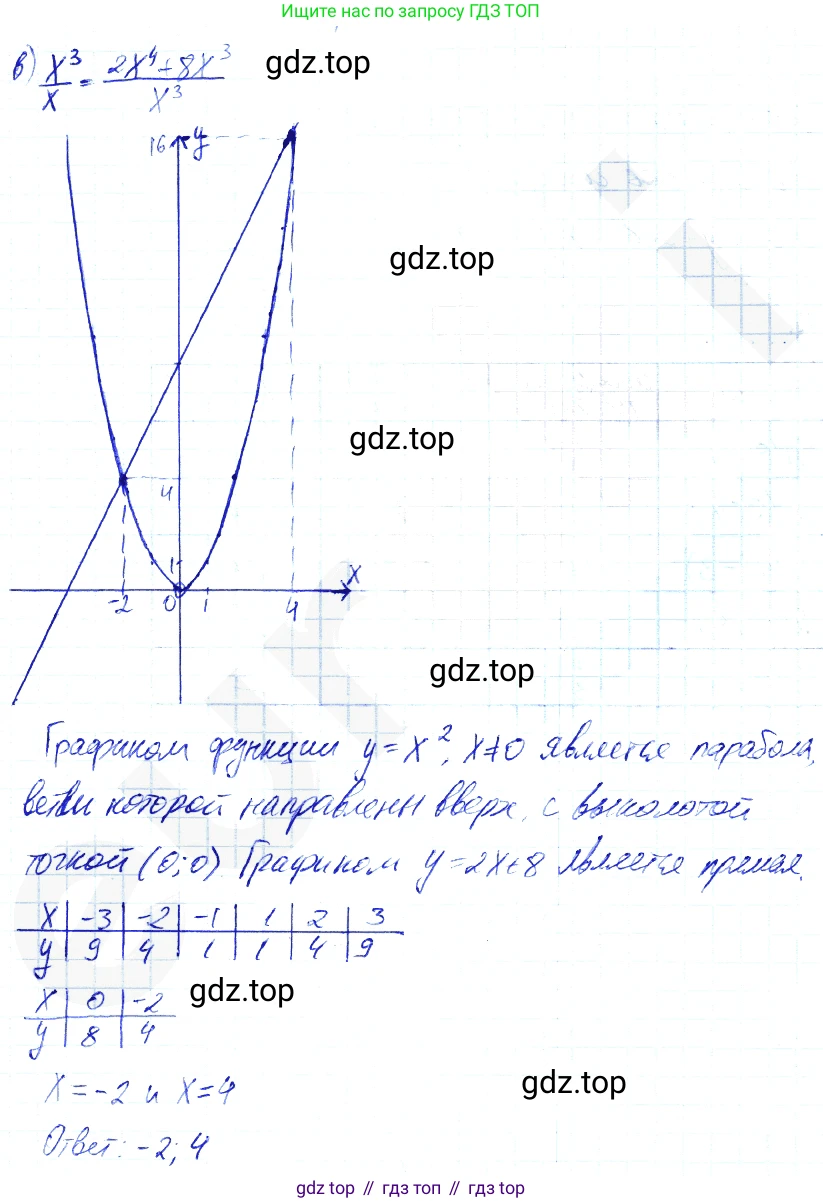 Ищите нас по запросу ГДЗ ТОП
в) x³/x = (2x⁴+8x³)/x³
gdz.top
16 y
gdz.top
gdz.top
4
1
x
-2 0 1 4
gdz.top
Графиком функции y = x², x≠0 является парабола,
ветви которой направлены вверх, с выколотой
точкой (0;0). Графиком y=2x+8 является прямая.
x | -3 | -2 | -1 | 1 | 2 | 3
y | 9 | 4 | 1 | 1 | 4 | 9
gdz.top
x | 0 | -2
y | 8 | 4
x = -2 и x=4
gdz.top
Ответ: -2; 4
gdz.top // гдз топ // gdz.top